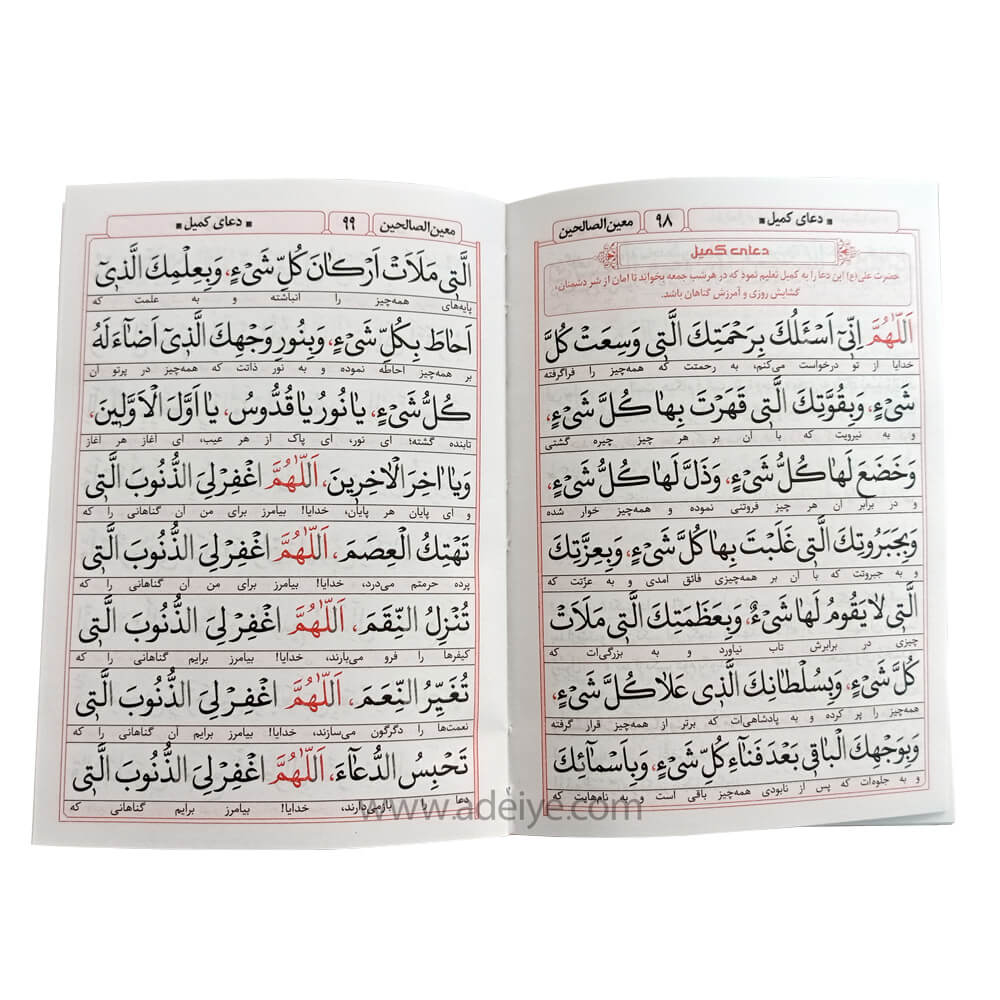 معین‌الصالحین
۹۸
▪ دعای کمیل ▪
دعای کمیل
حضرت علی(ع) این دعا را به کمیل تعلیم نمود که در هرشب جمعه بخواند تا امان از شر دشمنان،
گشایش روزی و آمرزش گناهان باشد.
اَللّٰهُمَّ اِنّیٓ اَسْئَلُكَ بِرَحْمَتِكَ الَّتی وَسِعَتْ كُلَّ
خدایا از تو درخواست می‌کنم، به رحمتت که همه‌چیز را فراگرفته
شَیْءٍ، وَبِقُوَّتِكَ الَّتی قَهَرْتَ بِهٰا كُلَّ شَیْءٍ،
و به نیرویت که با آن بر هر چیز چیره گشتی
وَخَضَعَ لَهٰا كُلُّ شَیْءٍ، وَذَلَّ لَهٰا كُلُّ شَیْءٍ،
و در برابر آن هر چیز فروتنی نموده و همه‌چیز خوار شده
وَبِجَبَرُوتِكَ الَّتی غَلَبْتَ بِهٰا كُلَّ شَیْءٍ، وَبِعِزَّتِكَ
و به جبروتت که با آن بر همه‌چیزی فائق آمدی و به عزّتت که
الَّتی لٰا یَقُومُ لَهٰا شَیْءٌ، وَبِعَظَمَتِكَ الَّتی مَلَاَتْ
چیزی در برابرش تاب نیاورد و به بزرگی‌ات که
كُلَّ شَیْءٍ، وَبِسُلْطٰانِكَ الَّذی عَلٰا كُلَّ شَیْءٍ،
همه‌چیز را پر کرده و به پادشاهی‌ات که برتر از همه‌چیز قرار گرفته
وَبِوَجْهِكَ الْبٰاقی بَعْدَ فَنٰاءِ كُلِّ شَیْءٍ، وَبِاَسْمٰآئِكَ
و به جلوه‌ات که پس از نابودی همه‌چیز باقی است و به نام‌هایت که
معین‌الصالحین
۹۹
▪ دعای کمیل ▪
الَّتی مَلَاَتْ اَرْكٰانَ كُلِّ شَیْءٍ، وَبِعِلْمِكَ الَّذیٓ
پایه‌های همه‌چیز را انباشته و به علمت که
اَحٰاطَ بِكُلِّ شَیْءٍ، وَبِنُورِ وَجْهِكَ الَّذیٓ اَضٰآءَ لَهُ
بر همه‌چیز احاطه نموده و به نور ذاتت که همه‌چیز در پرتو آن
كُلُّ شَیْءٍ، یٰا نُورُ یٰا قُدُّوسُ، یٰا اَوَّلَ الْاَوَّلِینَ،
تابنده گشته؛ ای نور، ای پاک از هر عیب، ای آغاز هر آغاز
وَیٰا اٰخِرَ الْاٰخِرِینَ، اَللّٰهُمَّ اغْفِرْ لِیَ الذُّنُوبَ الَّتی
و ای پایان هر پایان، خدایا! بیامرز برای من آن گناهانی را که
تَهْتِكُ الْعِصَمَ، اَللّٰهُمَّ اغْفِرْ لِیَ الذُّنُوبَ الَّتی
پرده حرمتم می‌درد، خدایا! بیامرز برای من آن گناهانی را که
تُنْزِلُ النِّقَمَ، اَللّٰهُمَّ اغْفِرْ لِیَ الذُّنُوبَ الَّتی
کیفرها را فرو می‌بارند، خدایا! بیامرز برایم گناهانی را که
تُغَیِّرُ النِّعَمَ، اَللّٰهُمَّ اغْفِرْ لِیَ الذُّنُوبَ الَّتی
نعمت‌ها را دگرگون می‌سازند، خدایا! بیامرز برایم آن گناهانی را که
تَحْبِسُ الدُّعٰآءَ، اَللّٰهُمَّ اغْفِرْ لِیَ الذُّنُوبَ الَّتی
دعا را بازمی‌دارند، خدایا! بیامرز برایم گناهانی که
www.adeiye.com